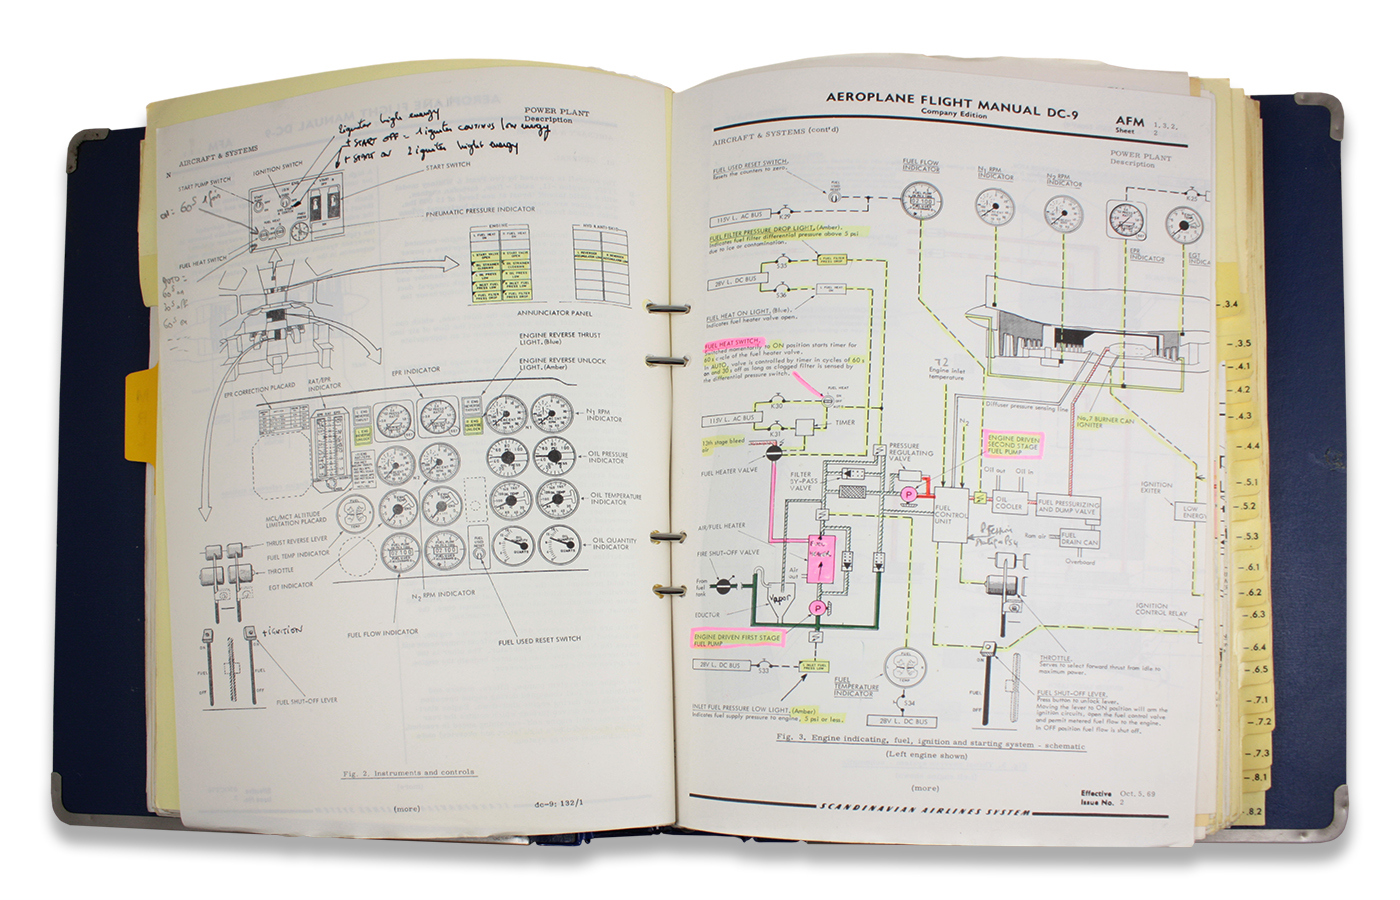 POWER PLANT
Description
AIRCRAFT & SYSTEMS
igniter high energy
START OFF = 1 igniter continus low energy
START ON 2 igniter high energy
IGNITION SWITCH
START SWITCH
START PUMP SWITCH
PNEUMATIC PRESSURE INDICATOR
ENGINE
FUEL HEAT SWITCH
60s on
ANNUNCIATOR PANEL
ENGINE REVERSE THRUST
LIGHT, (Blue)
ENGINE REVERSE UNLOCK
LIGHT, (Amber)
EPR CORRECTION PLACARD
RAT/EPR
INDICATOR
EPR INDICATOR
N₁ RPM
INDICATOR
OIL PRESSURE
INDICATOR
OIL TEMPERATURE
INDICATOR
MCL/MCT ALTITUDE
LIMITATION PLACARD
THRUST REVERSE LEVER
FUEL TEMP INDICATOR
THROTTLE
EGT INDICATOR
OIL QUANTITY
INDICATOR
N₂ RPM INDICATOR
+IGNITION
FUEL FLOW INDICATOR
FUEL USED RESET SWITCH
ON
FUEL
OFF
OFF
FUEL SHUT-OFF LEVER
Fig. 2. Instruments and controls
(more)
dc-9: 132/1
AEROPLANE FLIGHT MANUAL DC-9
Company Edition
AFM 1, 3, 2,
Sheet 2
AIRCRAFT & SYSTEMS (cont'd)
POWER PLANT
Description
FUEL USED RESET SWITCH.
Resets the counters to zero.
FUEL
USED
RESET
FUEL FLOW
INDICATOR
N₁ RPM
INDICATOR
N₂ RPM
INDICATOR
K25
115V L. AC BUS
K29
FUEL FILTER PRESSURE DROP LIGHT, (Amber).
Indicates fuel filter differential pressure above 5 psi
due to ice or contamination.
EPR
INDICATOR
EGT
S35
FUEL FILTER
PRESS DROP
28V L. DC BUS
S36
FUEL HEAT ON
FUEL HEAT ON LIGHT, (Blue).
Indicates fuel heater valve open.
FUEL HEAT SWITCH.
Switched momentarily to ON position starts timer for
60 s cycle of the fuel heater valve.
In AUTO, valve is controlled by timer in cycles of 60 s
on and 30 s off as long as clogged filter is sensed by
the differential pressure switch.
T2
Engine inlet
temperature
FUEL HEAT
K30
115V L. AC BUS
K31
TIMER
Diffuser pressure sensing line
No.7 BURNER CAN
IGNITER
N₂
12th stage bleed
air
PRESSURE
REGULATING
VALVE
ENGINE DRIVEN
SECOND STAGE
FUEL PUMP
FUEL HEATER VALVE
FILTER
BY-PASS
VALVE
Oil out
Oil in
P
OIL
COOLER
FUEL PRESSURIZING
AND DUMP VALVE
IGNITION
EXITER
LOW
ENERGY
AIR/FUEL HEATER
FUEL
CONTROL
UNIT
Ram air
FUEL
DRAIN CAN
Overboard
FIRE SHUT-OFF VALVE
Air
out
From
fuel
tank
Vapor
P
EDUCTOR
IGNITION
CONTROL RELAY
ENGINE DRIVEN FIRST STAGE
FUEL PUMP
28V L. DC BUS
S33
INLET FUEL
PRESS LOW
FUEL
TEMPERATURE
INDICATOR
S34
28V L. DC BUS
THROTTLE.
Serves to select forward thrust from idle to
maximum power.
ON
FUEL
OFF
FUEL SHUT-OFF LEVER.
Press button to unlock lever.
Moving the lever to ON position will arm the
ignition circuits, open the fuel control valve
and permit metered fuel flow to the engine.
In OFF position fuel flow is shut off.
INLET FUEL PRESSURE LOW LIGHT, (Amber)
Indicates fuel supply pressure to engine, 5 psi or less.
Fig. 3. Engine indicating, fuel, ignition and starting system - schematic
(Left engine shown)
(more)
Effective Oct. 5, 69
Issue No. 2
SCANDINAVIAN AIRLINES SYSTEM
-.3.4
-.3.5
-.4.1
-.4.2
-.4.3
-.4.4
-.5.1
-.5.2
-.5.3
-.6.2
-.6.3
-.6.4
-.6.5
-.7.1
-.7.2
-.7.3
-.8.1
-.8.2